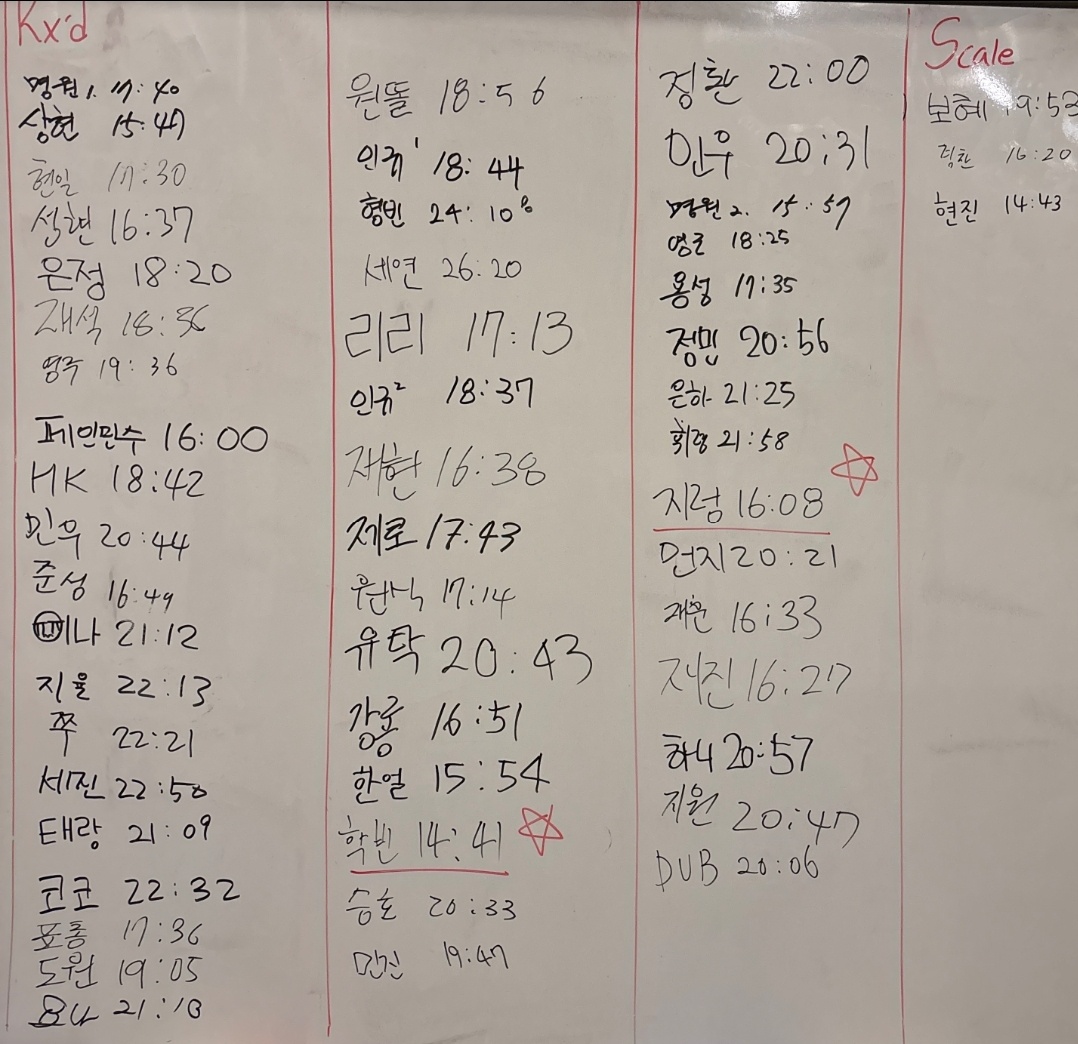 Rx'd
명원1. 17:40
상현 15:47
현일 17:30
설현 16:37
은정 18:20
재석 18:56
영주 19:36
페인민수 16:00
HK 18:42
민우 20:44
준성 16:49
미나 21:12
지율 22:13
쭈 22:21
세진 22:50
태랑 21:09
코코 22:32
표롱 17:36
도원 19:05
요나 21:18
원똘 18:56
인규¹ 18:44
형빈 24:10
세연 26:20
리리 17:13
인규² 18:37
재현 16:38
제로 17:43
원식 17:14
유탁 20:43
강룡 16:51
한얼 15:54
학빈 14:41
승호 20:33
민진 19:47
정환 22:00
민우 20:31
명원2. 15:57
영근 18:25
용성 17:35
정민 20:56
은하 21:25
휘령 21:58
지렁 16:08
먼지 20:21
재훈 16:33
재진 16:27
하니 20:57
지원 20:47
DUB 20:06
Scale
보혜 19:53
정환 16:20
현진 14:43